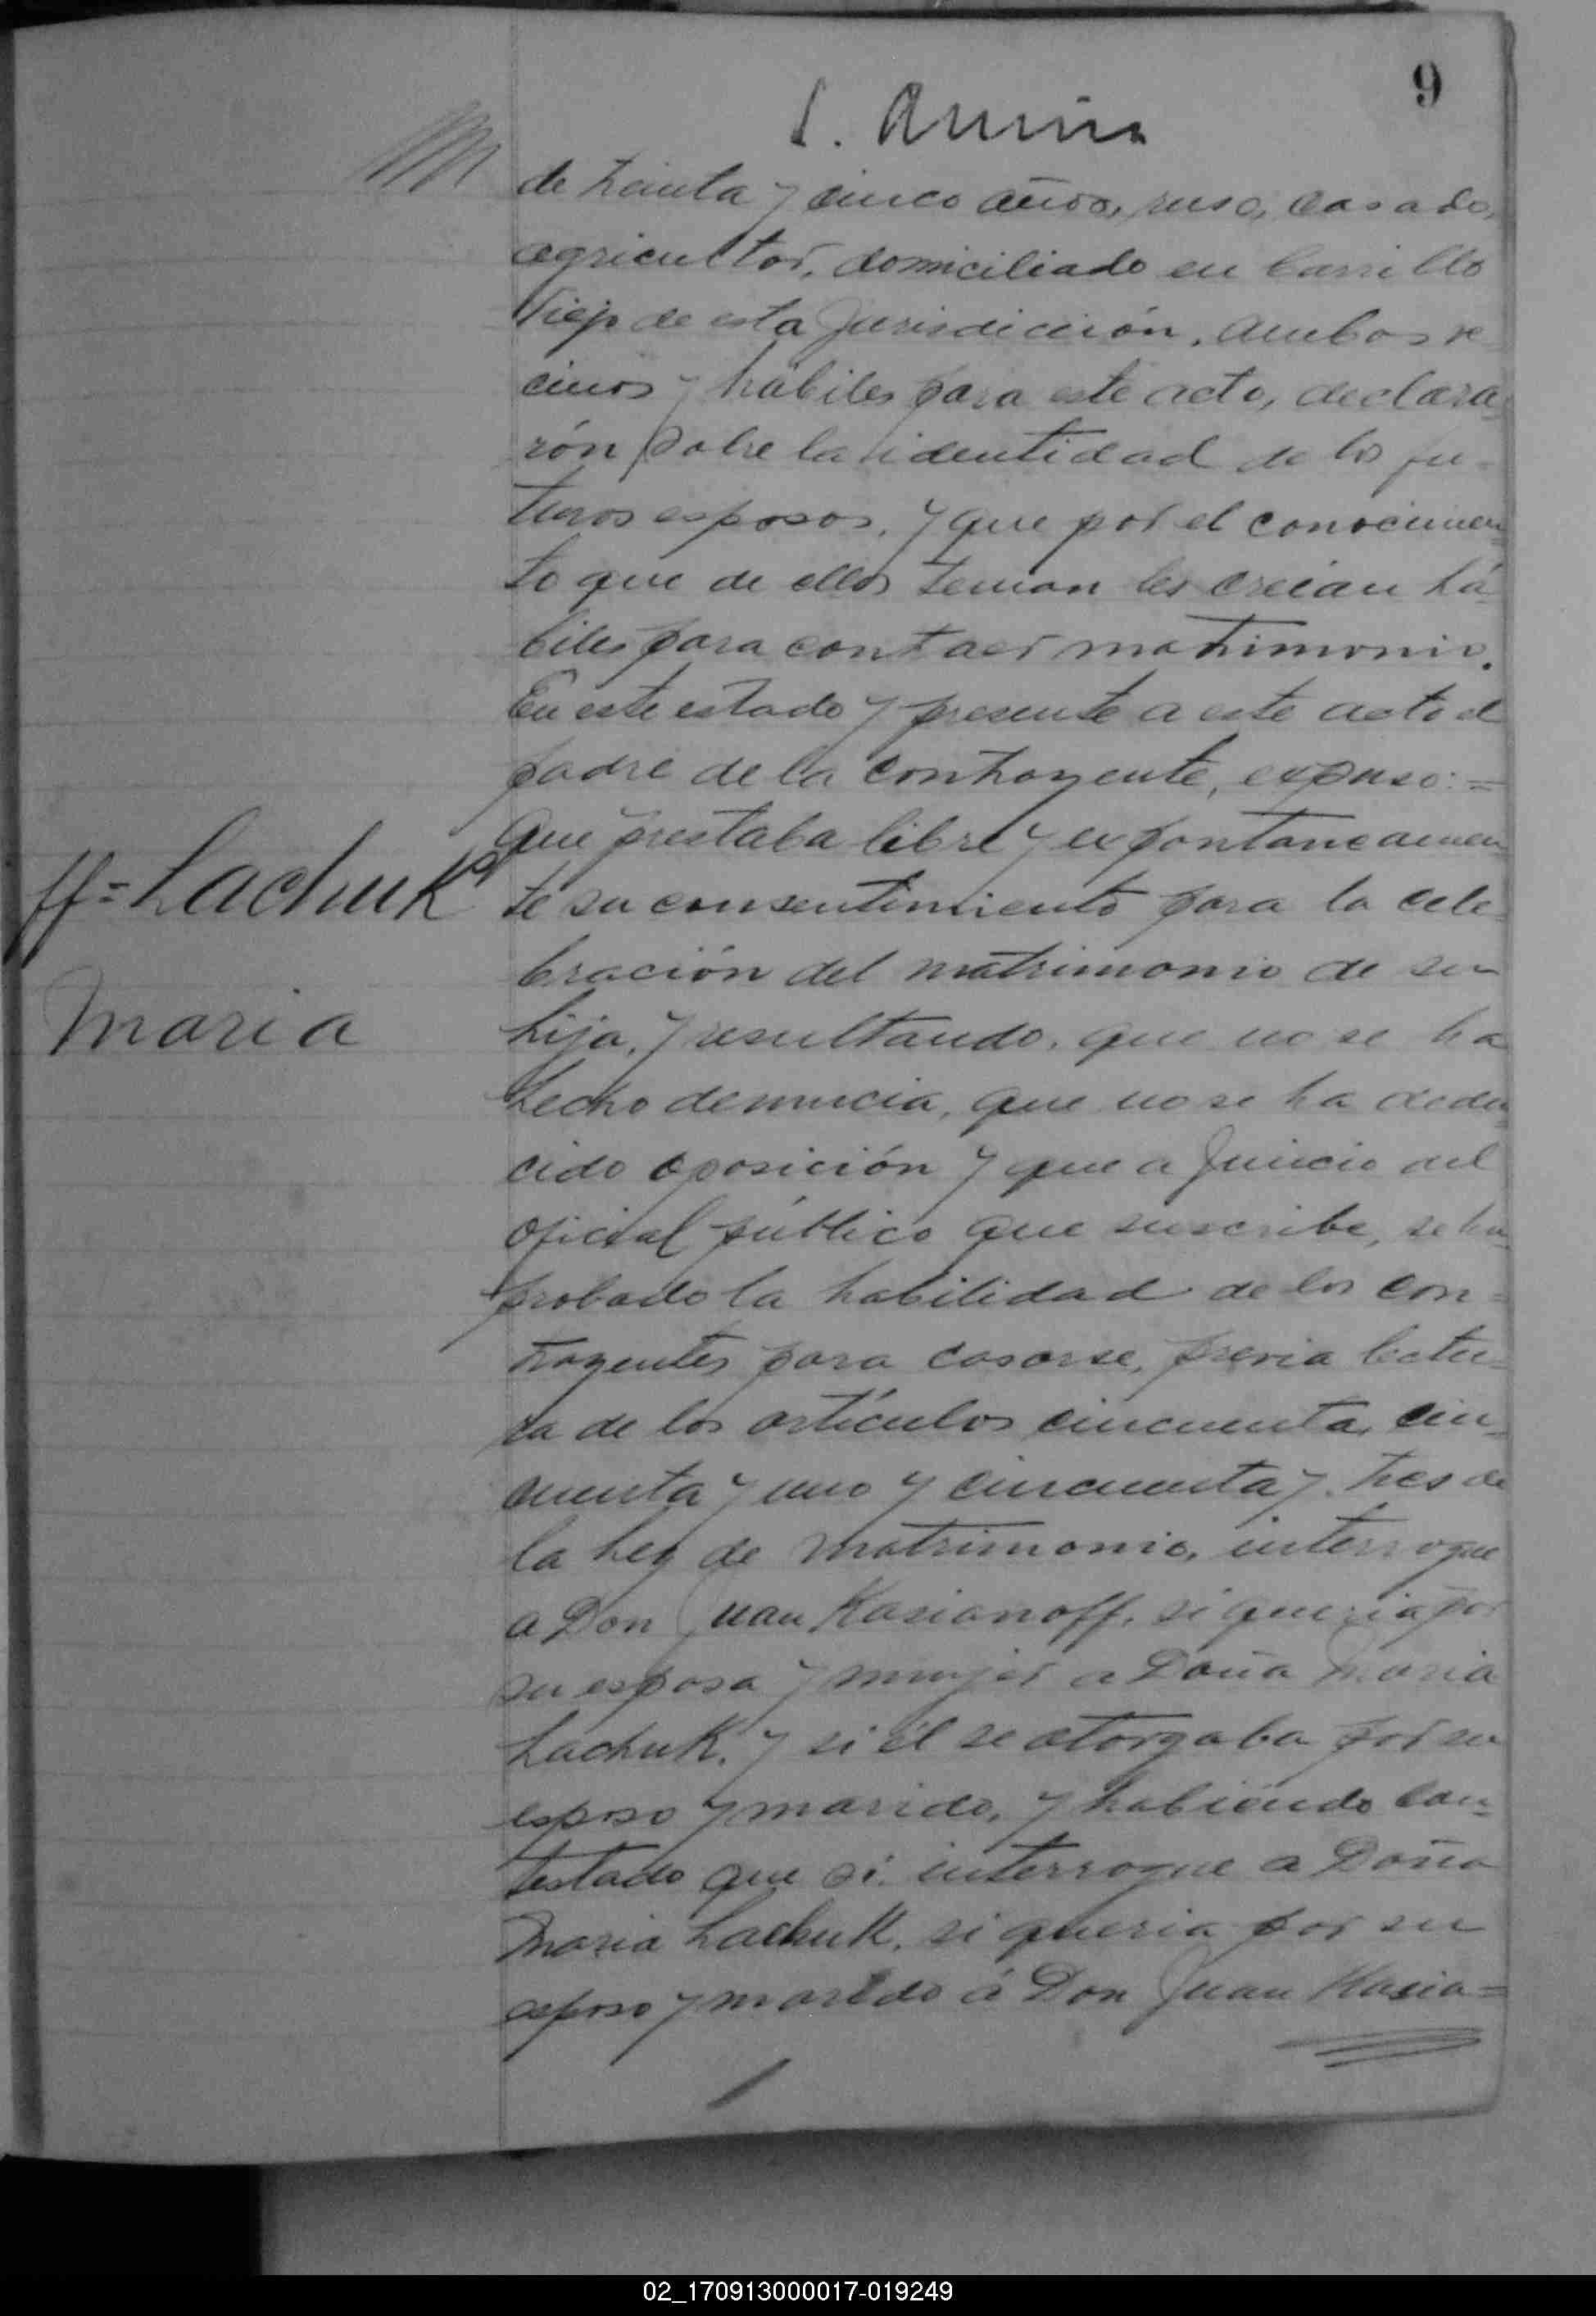 9
de treinta y cinco años, ruso, casado,
agricultor, domiciliado en Carrillo
Viejo de esta Jurisdicción, ambos ve
cinos y habiles para este acto, declara
rón sobre la identidad de los fu=
turos esposos, y que por el conocimien
to que de ellos tenian les creían há
biles para contraer matrimonio.
En este estado y presente a este acto el
padre de la contrayente, expuso:=
Que prestaba libre y expontaneamen
te su consentimiento para la cele
ff=Lachuk
bración del matrimonio de su
Maria
hija, y resultando, que no se ha
hecho denuncia, que no se ha dedu
cido oposición y que a Juicio del
Oficial público que suscribe, se ha
probado la habilidad de los con=
trayentes para casarse, previa lectu=
ra de los artículos cincuenta, cin
cuenta y uno y cincuenta y tres de
la Ley de Matrimonio, interrogue
a Don Juan Kasianoff, si queria por
su esposa y mujer a Doña Maria
Lachuk, y si él se otorgaba por su
esposo y marido, y habiéndo con
testado que si interrogue a Doña
Maria Lachuk, si queria por su
esposo y marido á Don Juan Kasia=
02_170913000017-019249